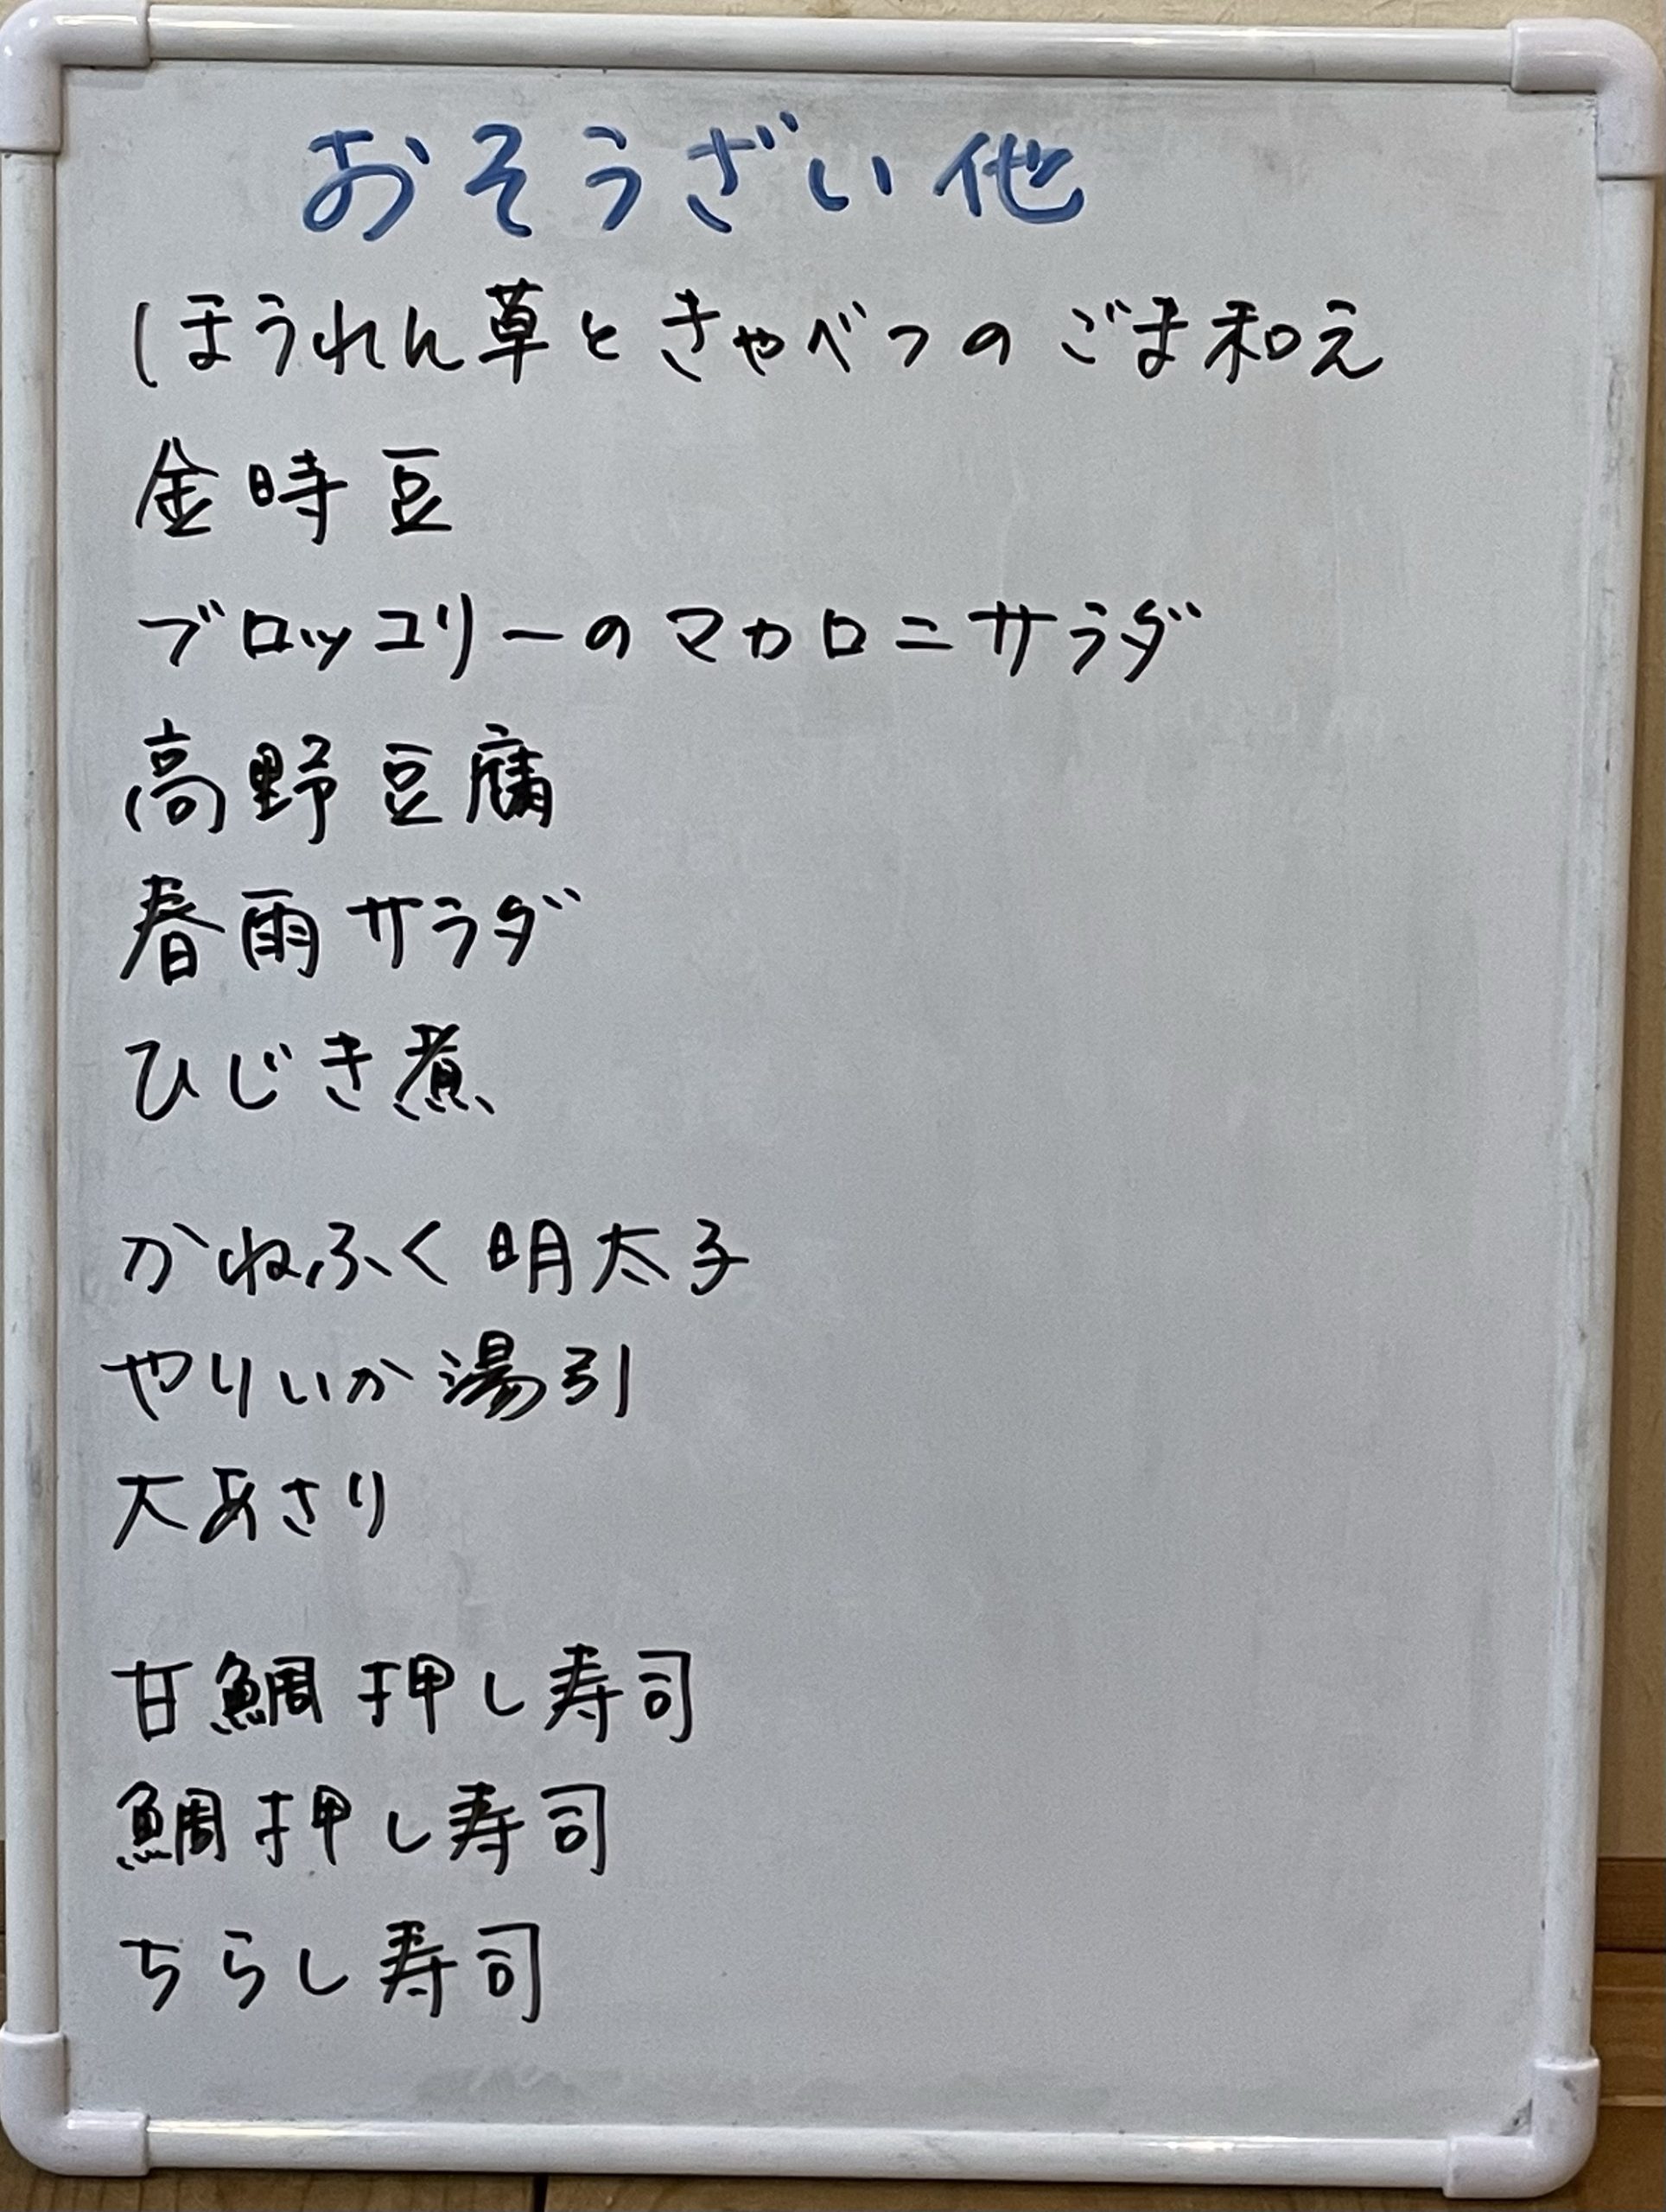 おそうざい他
ほうれん草ときゃべつのごま和え
金時豆
ブロッコリーのマカロニサラダ
高野豆腐
春雨サラダ
ひじき煮
かねふく明太子
やりいか湯引
大あさり
甘鯛押し寿司
鯛押し寿司
ちらし寿司